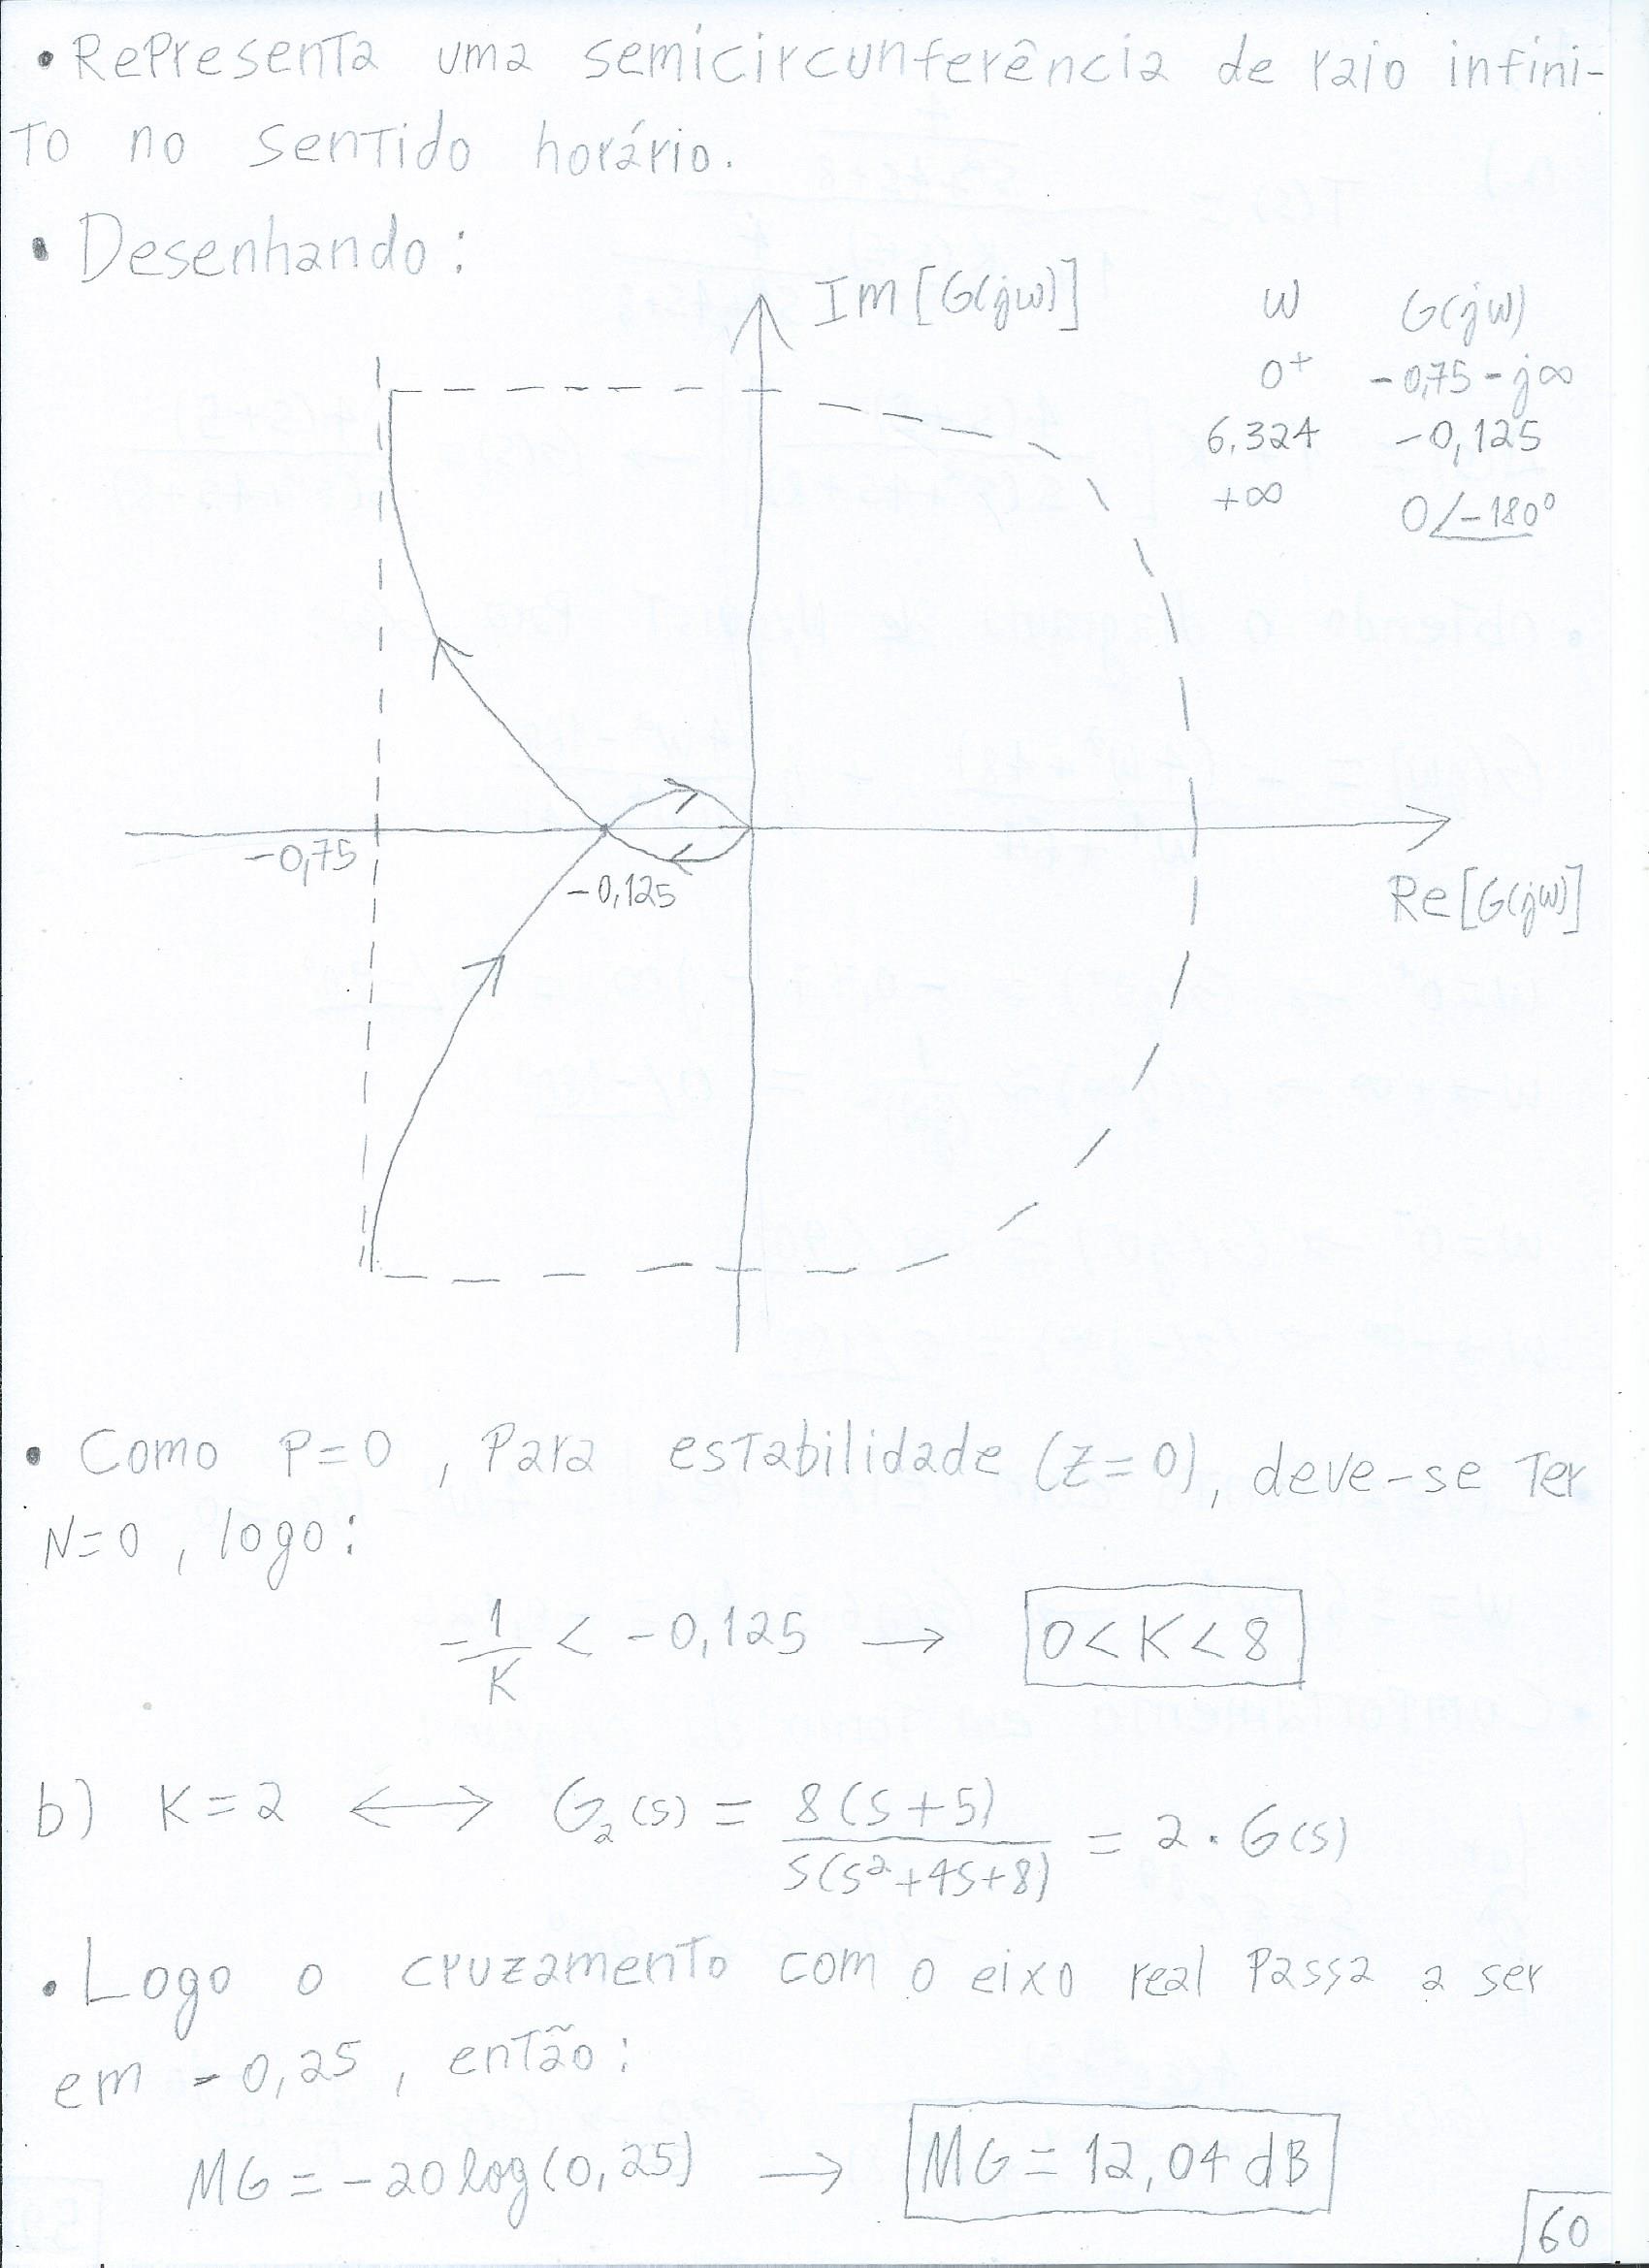 • Representa uma semicircunferência de raio infini-
to no sentido horário.
• Desenhando:
Im[G(jω)]
ω G(jω)
0⁺ -0,75-j∞
6,324 -0,125
+∞ 0∠-180°
-0,75
-0,125
Re[G(jω)]
• Como P=0, para estabilidade (Z=0), deve-se ter
N=0, logo:
-1/K < -0,125 → 0<K<8
b) K=2 ↔ G₂(s) = 8(s+5)/s(s²+4s+8) = 2·G(s)
• Logo o cruzamento com o eixo real passa a ser
em -0,25, então:
MG = -20log(0,25) → MG = 12,04 dB
60